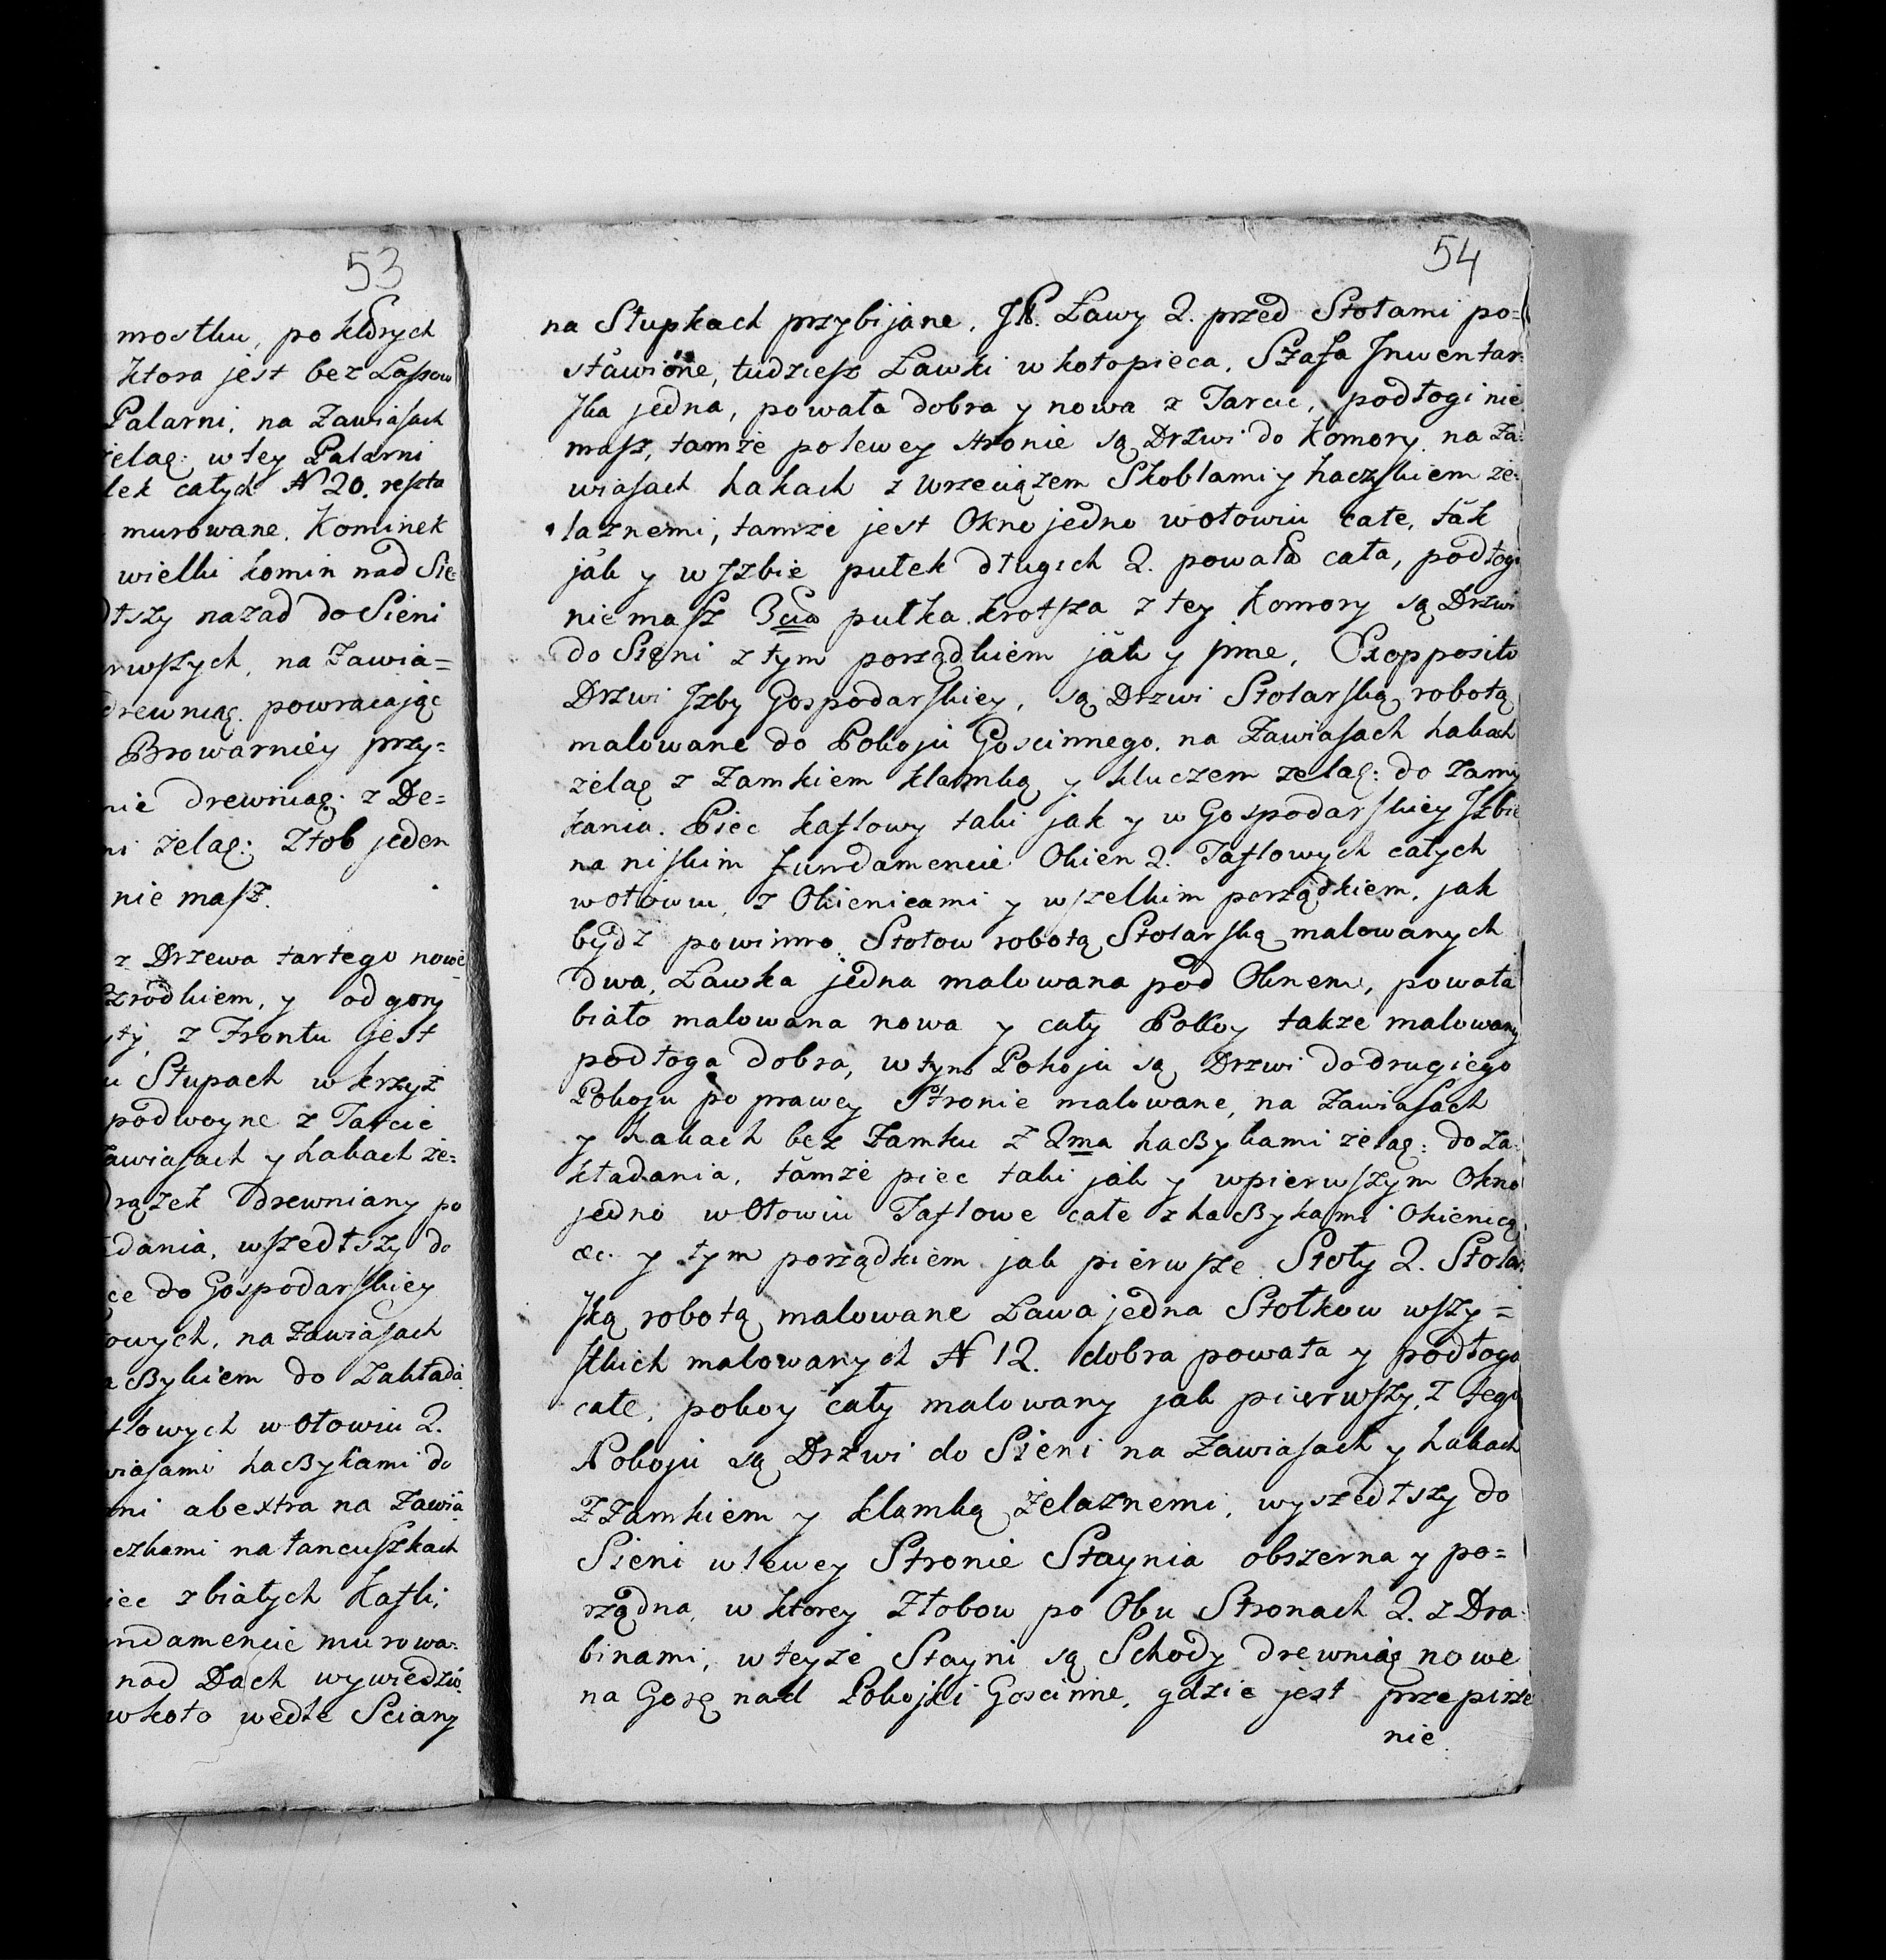 53
mostku, po ktorych
ktora jest bez Lassow
Palarni, na Zawiasach
żelaę: w tey Palarni
lek całych N 20. reszta
murowane. Kominek
wielki komin nad Sie
dłszy nazad do Sieni
rwszych, na Zawia=
drewniaę. powracając
Browarniey przy=
nie drewniaę: z De=
ni żelaę: Złob jeden
nie masz.
z Drzewa tartego nowe
Szrodkiem, y od gory
yty, z Frontu jest
u Słupach w krzyż
podwoyne z Tarcic
Zawiasach y hakach że=
drążek drewniany po
dania, wszedłszy do
ce do Gospodarskiey
owych, na Zawiasach
aßykiem do Zakłada
flowych w ołowiu 2.
wiasami haßykami do
mi abextra na Zawia
czkami na łancuszkach
iec z białych Kafli,
ndamencie murowa:
nad Dach wywiedzio
wkoło wedle Sciany
54
na Słupkach przybijane. It. Ławy 2. przed Stołami po=
stawione, tudziesz Ławki w koło pieca. Szafa Inwentar:
ska jedna, powała dobra y nowa z Tarcic, podłogi nie
masz, tamże po lewey stronie są Drzwi do Komory na Za:
wiasach hakach z wrzeciązem Skoblami y haczykiem że:
laznemi, tamże jest Okno jedno w ołowiu całe, tak
jak y w Izbie pułek długich 2. powała cała, podłogi
nie masz 3cia pułka krotsza z tey Komory są Drzwi
do Sięni z tym porządkiem jak y jnne. Exopposito
Drzwi Izby Gospodarskiey, są Drzwi Stolarską robotą
malowane do Pokoju Goscinnego. na Zawiasach hakach
żelaę z Zamkiem klamką y kluczem żelaę: do zamy
kania. Piec kaflowy taki jak y w Gospodarskiey Izbie
na niskim fundamencie Okien 2. Taflowych całych
w ołowiu, z Okienicami y wszelkim porządkiem, jak
bydz powinno. Stołow robotą Stolarską malowanych
dwa, Ławka jedna malowana pod Oknem, powała
biało malowana nowa y cały Pokoy także malowany
podłoga dobra, w tym Pokoju są Drzwi do drugiego
Pokoju po prawey Stronie malowane, na Zawiasach
y hakach bez Zamku z 2ma haßykami żelaę: do za:
kładania, tamże piec taki jak y w pierwszym Okno
jedno w Ołowiu Taflowe całe z haßykami Okienicą
&c. y tym porządkiem jak pierwsze. Stoły 2. Stolar:
ską robotą malowane Ława jedna Stołkow wszy=
stkich malowanych N 12. dobra powała y podłoga
całe, pokoy cały malowany jak pierwszy, z tego
Pokoju są Drzwi do Sieni na Zawiasach y hakach
z Zamkiem y klamką żelaznemi, wyszedłszy do
Sieni w lewey Stronie Staynia obszerna y po=
rządna, w ktorey Złobow po Obu Stronach 2. z Dra:
binami, w teyże Stayni są Schody drewniaę nowe
na Gorę nad Pokojki Goscinne, gdzie jest przepirze
nie